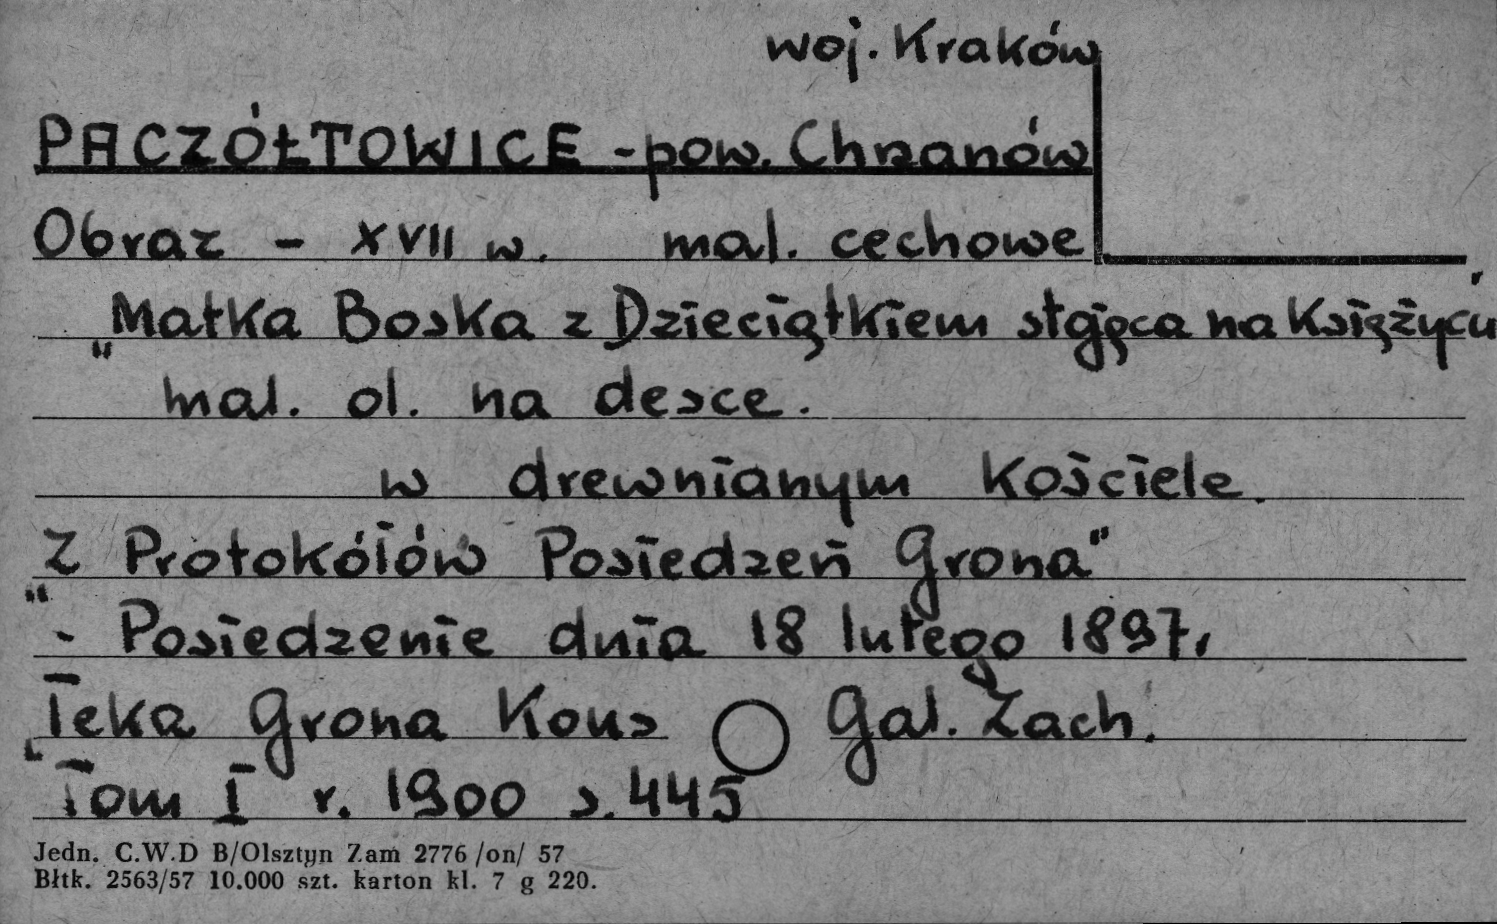 woj. Kraków
PACZÓŁTOWICE - pow. Chrzanów
Obraz - XVII w. mal. cechowe
"Matka Boska z Dzieciątkiem stojąca na Księżycu"
mal. ol. na desce.
w drewnianym Kościele.
"Z Protokółów Posiedzeń Grona"
- Posiedzenie dnia 18 lutego 1897r.
"Teka Grona Kons Gal. Zach.
Tom I r. 1900 s. 445
Jedn. C.W.D B/Olsztyn Zam 2776 /on/ 57
Błtk. 2563/57 10.000 szt. karton kl. 7 g 220.